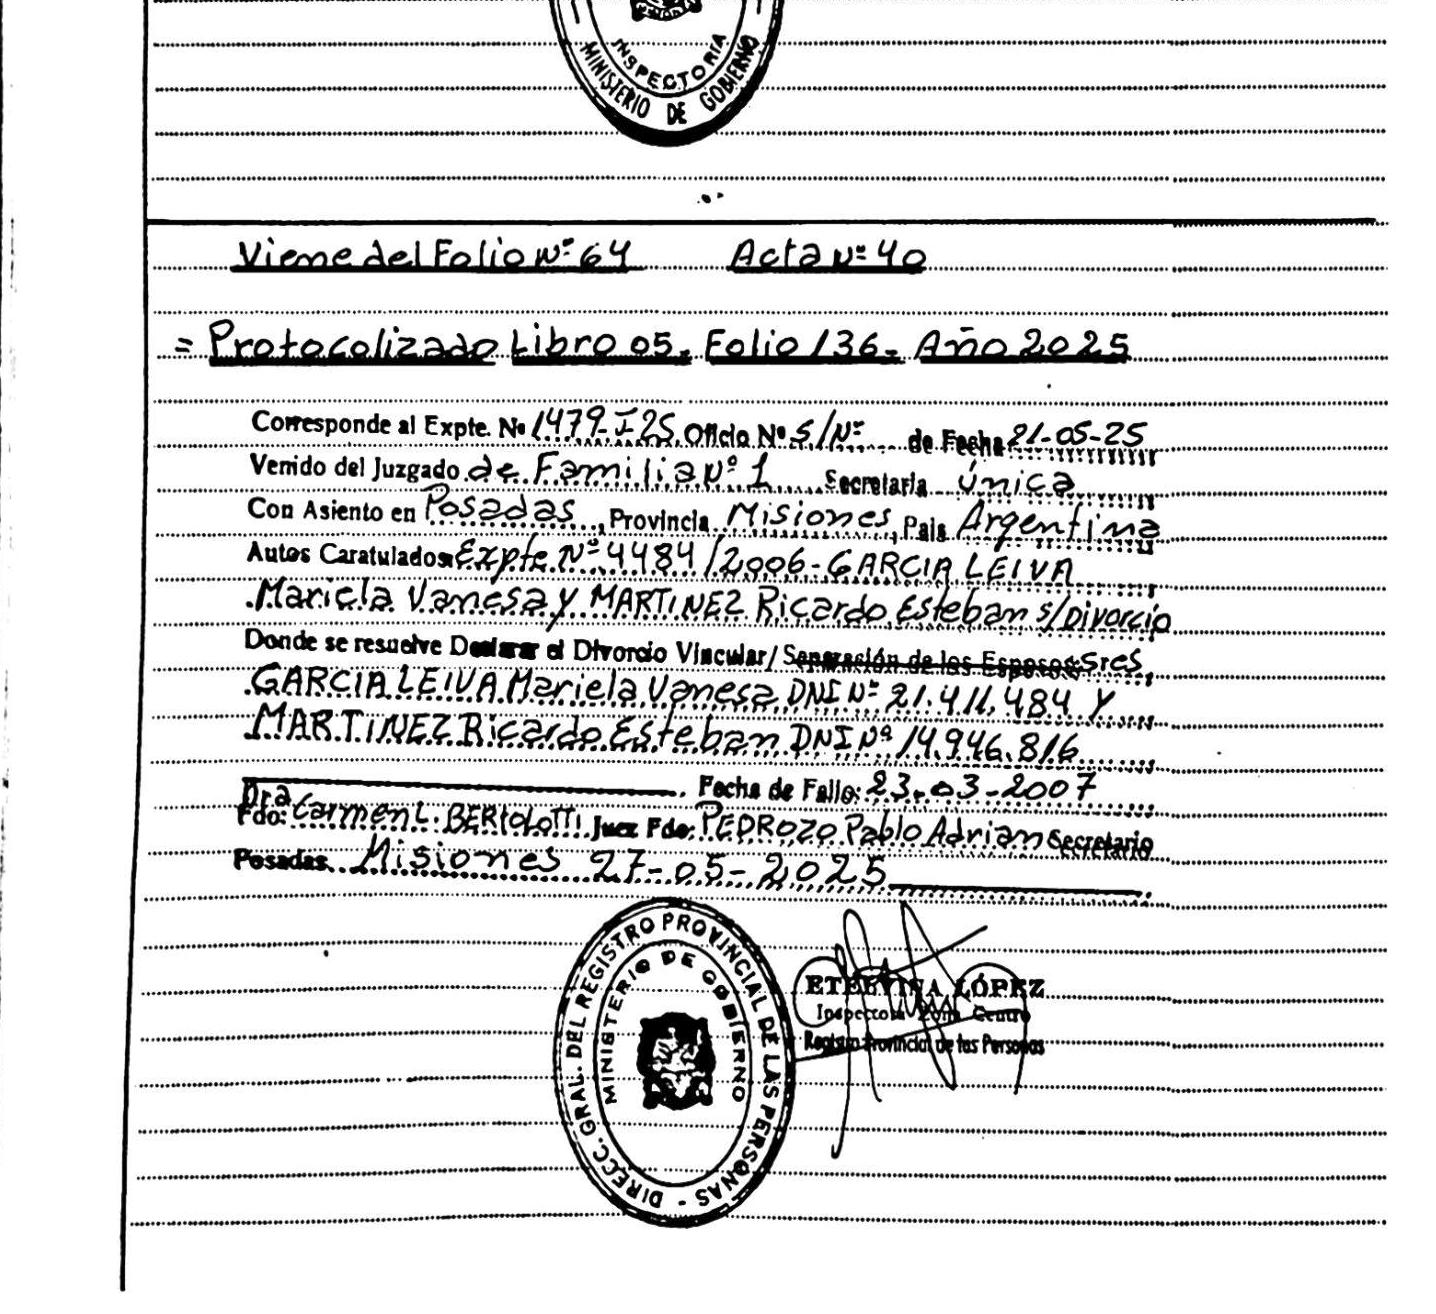 INSPECTORIA
MINISTERIO DE GOBIERNO
Viene del Folio Nº 64 Acta Nº 40
= Protocolizado Libro 05- Folio 136- Año 2025
Corresponde al Expte. Nº 1479-I-25 Oficio Nº S/Nº de Fecha 21-05-25
Venido del Juzgado de Familia Nº 1 Secretaria Única
Con Asiento en Posadas, Provincia Misiones, Pais Argentina
Autos Caratulados Expte Nº 4484/2006-GARCIA LEIVA
Mariela Vanesa y MARTINEZ Ricardo Esteban s/Divorcio
Donde se resuelve Declarar el Divorcio Vincular/ Separación de los Esposos Sres
GARCIA LEIVA Mariela Vanesa DNI Nº 21.411.484 Y
MARTINEZ Ricardo Esteban DNI Nº 14.946.816
Fecha de Fallo: 23-03-2007
Dra
Fdo: Carmen L. BERTOLOTTI Juez Fdo: PEDROZO Pablo Adrian Secretario
Posadas, Misiones 27-05-2025
DIRECC. GRAL. DEL REGISTRO PROVINCIAL DE LAS PERSONAS -
MINISTERIO DE GOBIERNO
ETELVINA LÓPEZ
Inspectora Zona Centro
Registro Provincial de las Personas